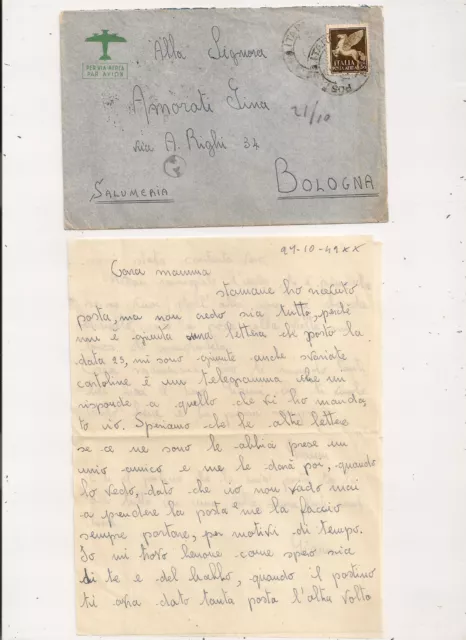 PER VIA AEREA
PAR AVION
Alla Signora
Amorati Gina
via A. Righi 34
21/10
SALUMERIA
BOLOGNA
ITALIA
29-10-42 XX
Cara mamma
stamane ho ricevuto
posta, ma non credo sia tutto, perché
mi è giunta una lettera che porta la
data 23, mi sono giunte anche svariate
cartoline e un telegramma che mi
risponde a quello che vi ho manda
to io. Speriamo che le altre lettere
se ce ne sono le abbia prese un
mio amico e me le darà poi, quando
lo vedo, dato che io non vado mai
a prendere la posta e me la faccio
sempre portare, per motivi di tempo.
Io mi trovo benone come spero sia
di te e del babbo, quando il postino
ti avrà dato tanta posta l'altra volta